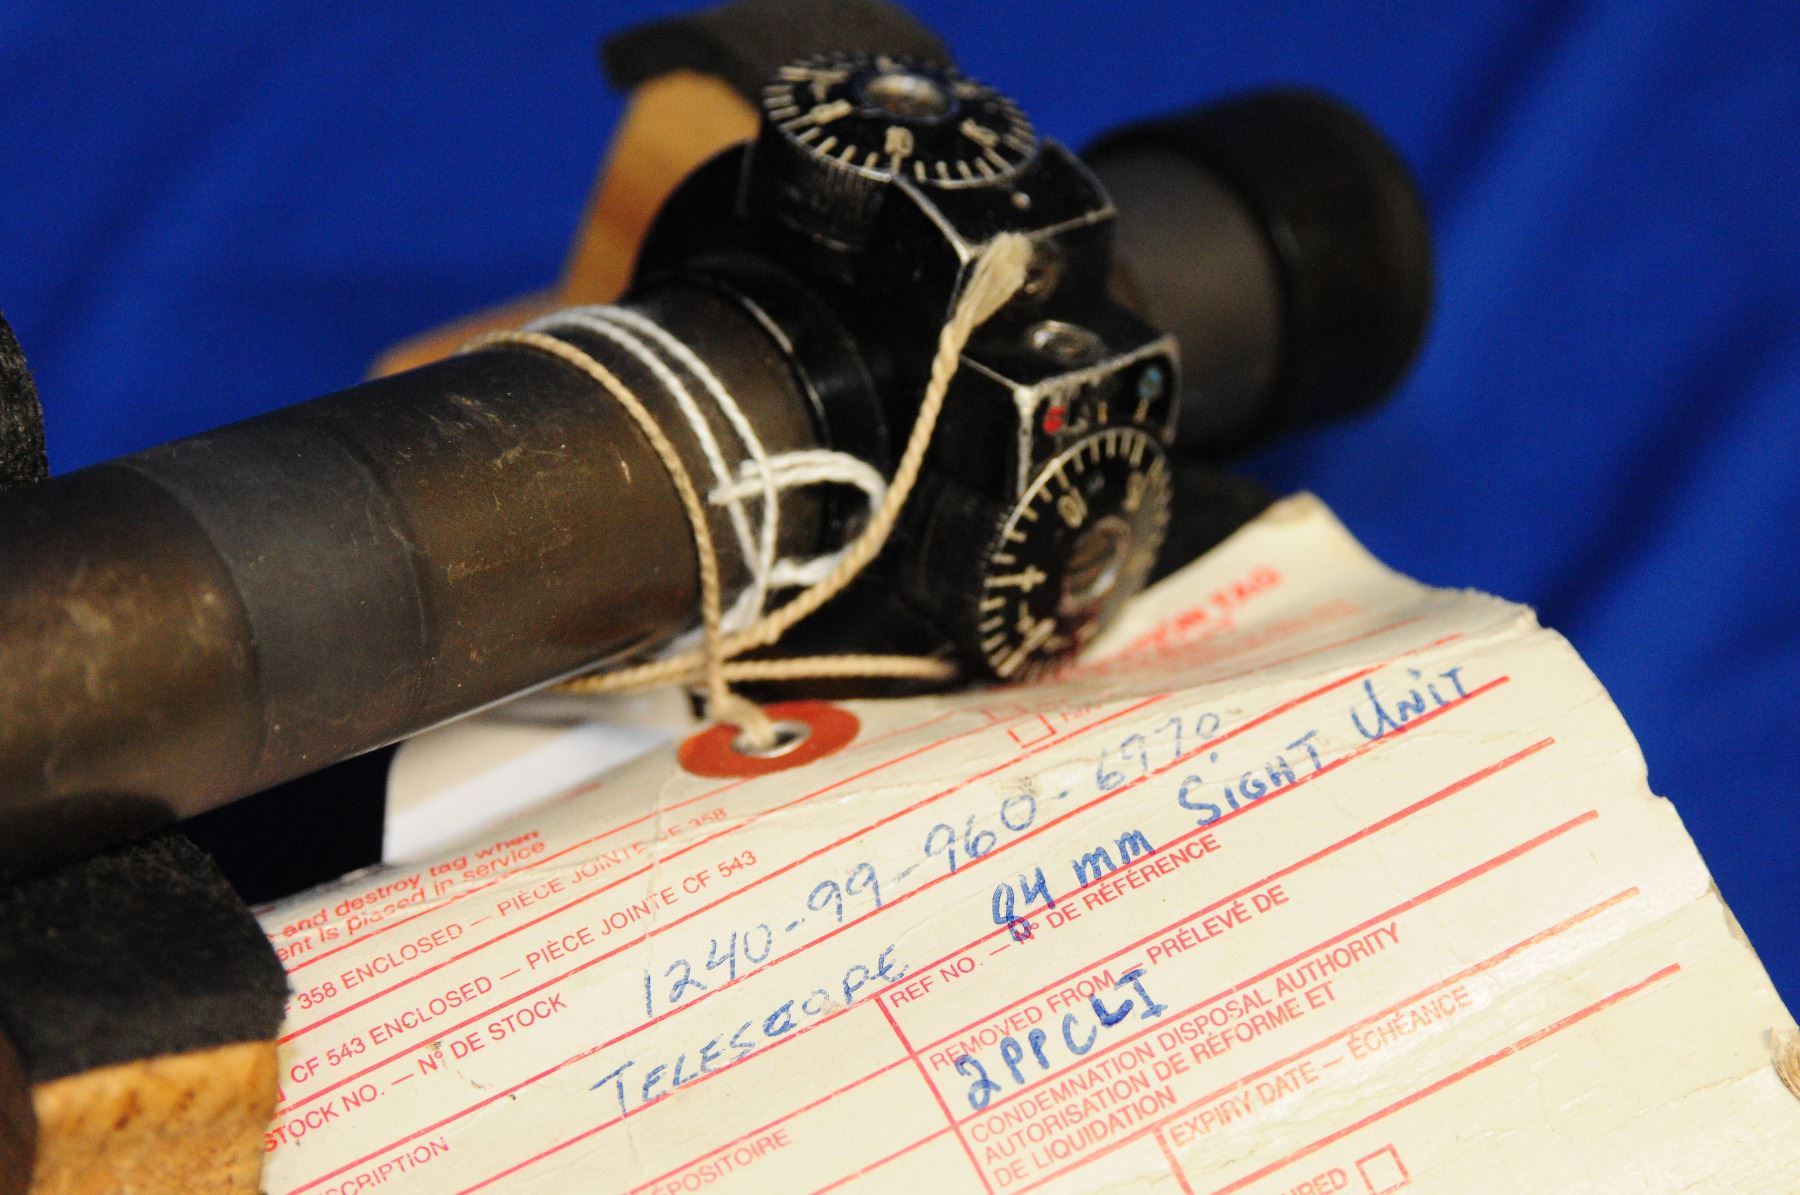 10
15
10
15
TAG
and destroy tag when
ent is placed in service
358 ENCLOSED — PIÈCE JOINTE CF 358
CF 543 ENCLOSED — PIÈCE JOINTE CF 543
STOCK NO. — Nº DE STOCK
1240-99-960-6970
SCRIPTION
TELESCOPE 84 mm SIGHT UNIT
REF NO. — Nº DE RÉFÉRENCE
POSITOIRE
REMOVED FROM — PRÉLEVÉ DE
2PPCLI
CONDEMNATION DISPOSAL AUTHORITY
AUTORISATION DE RÉFORME ET
DE LIQUIDATION
EXPIRY DATE — ÉCHÉANCE